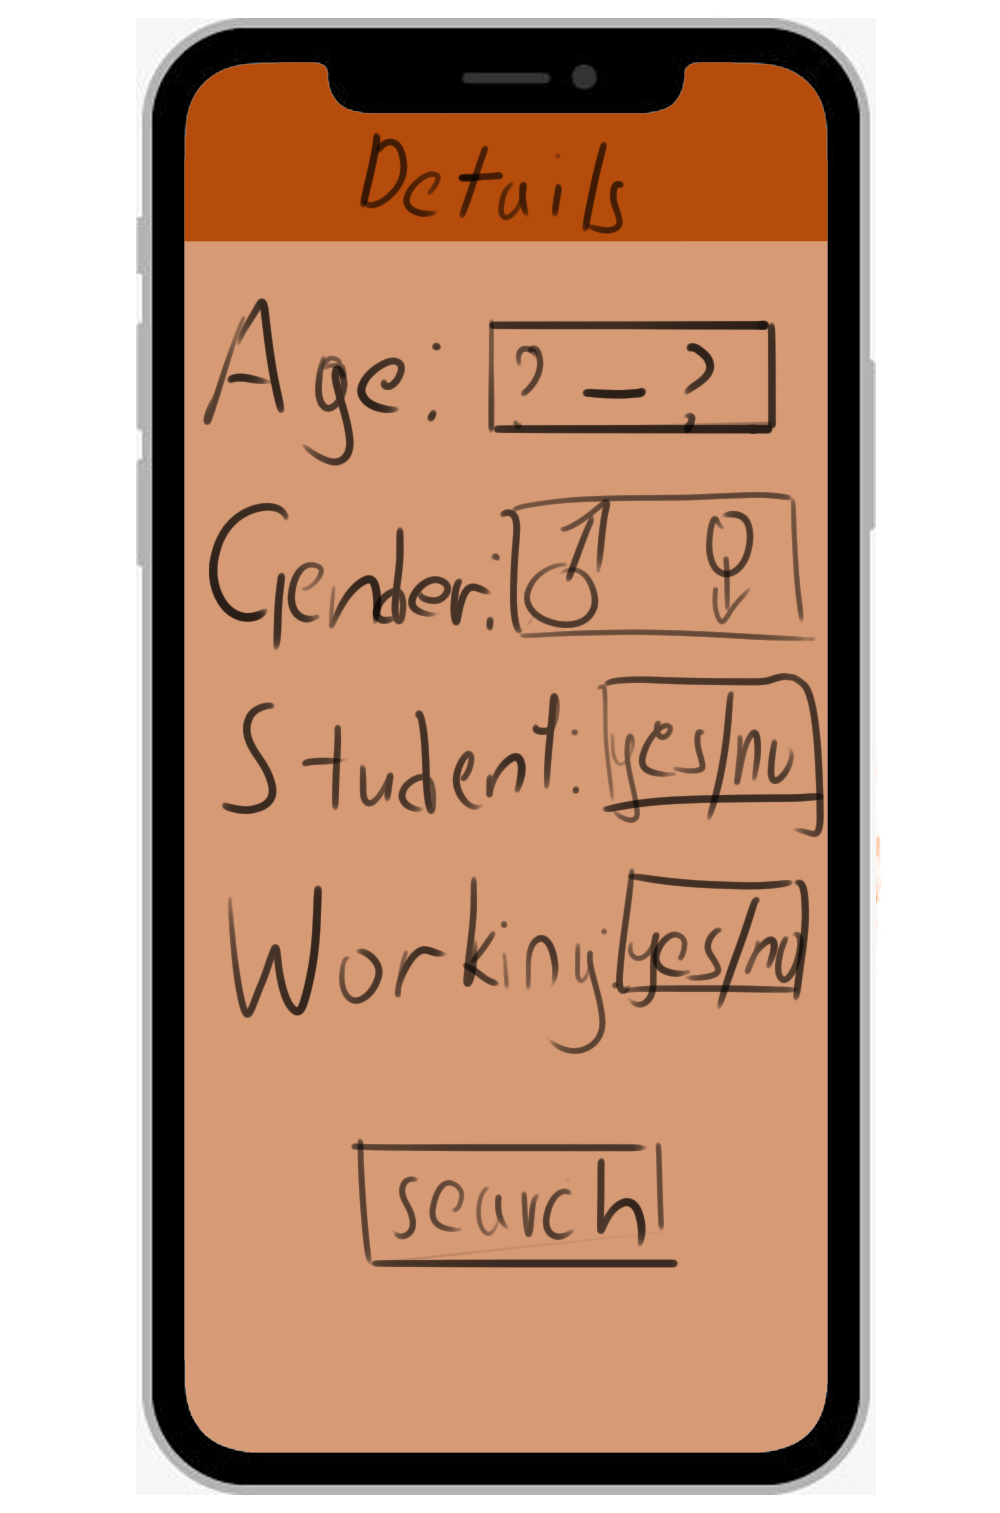 Details
Age: ? – ?
Gender: ♂ ♀
Student: yes/no
Working: yes/no
search